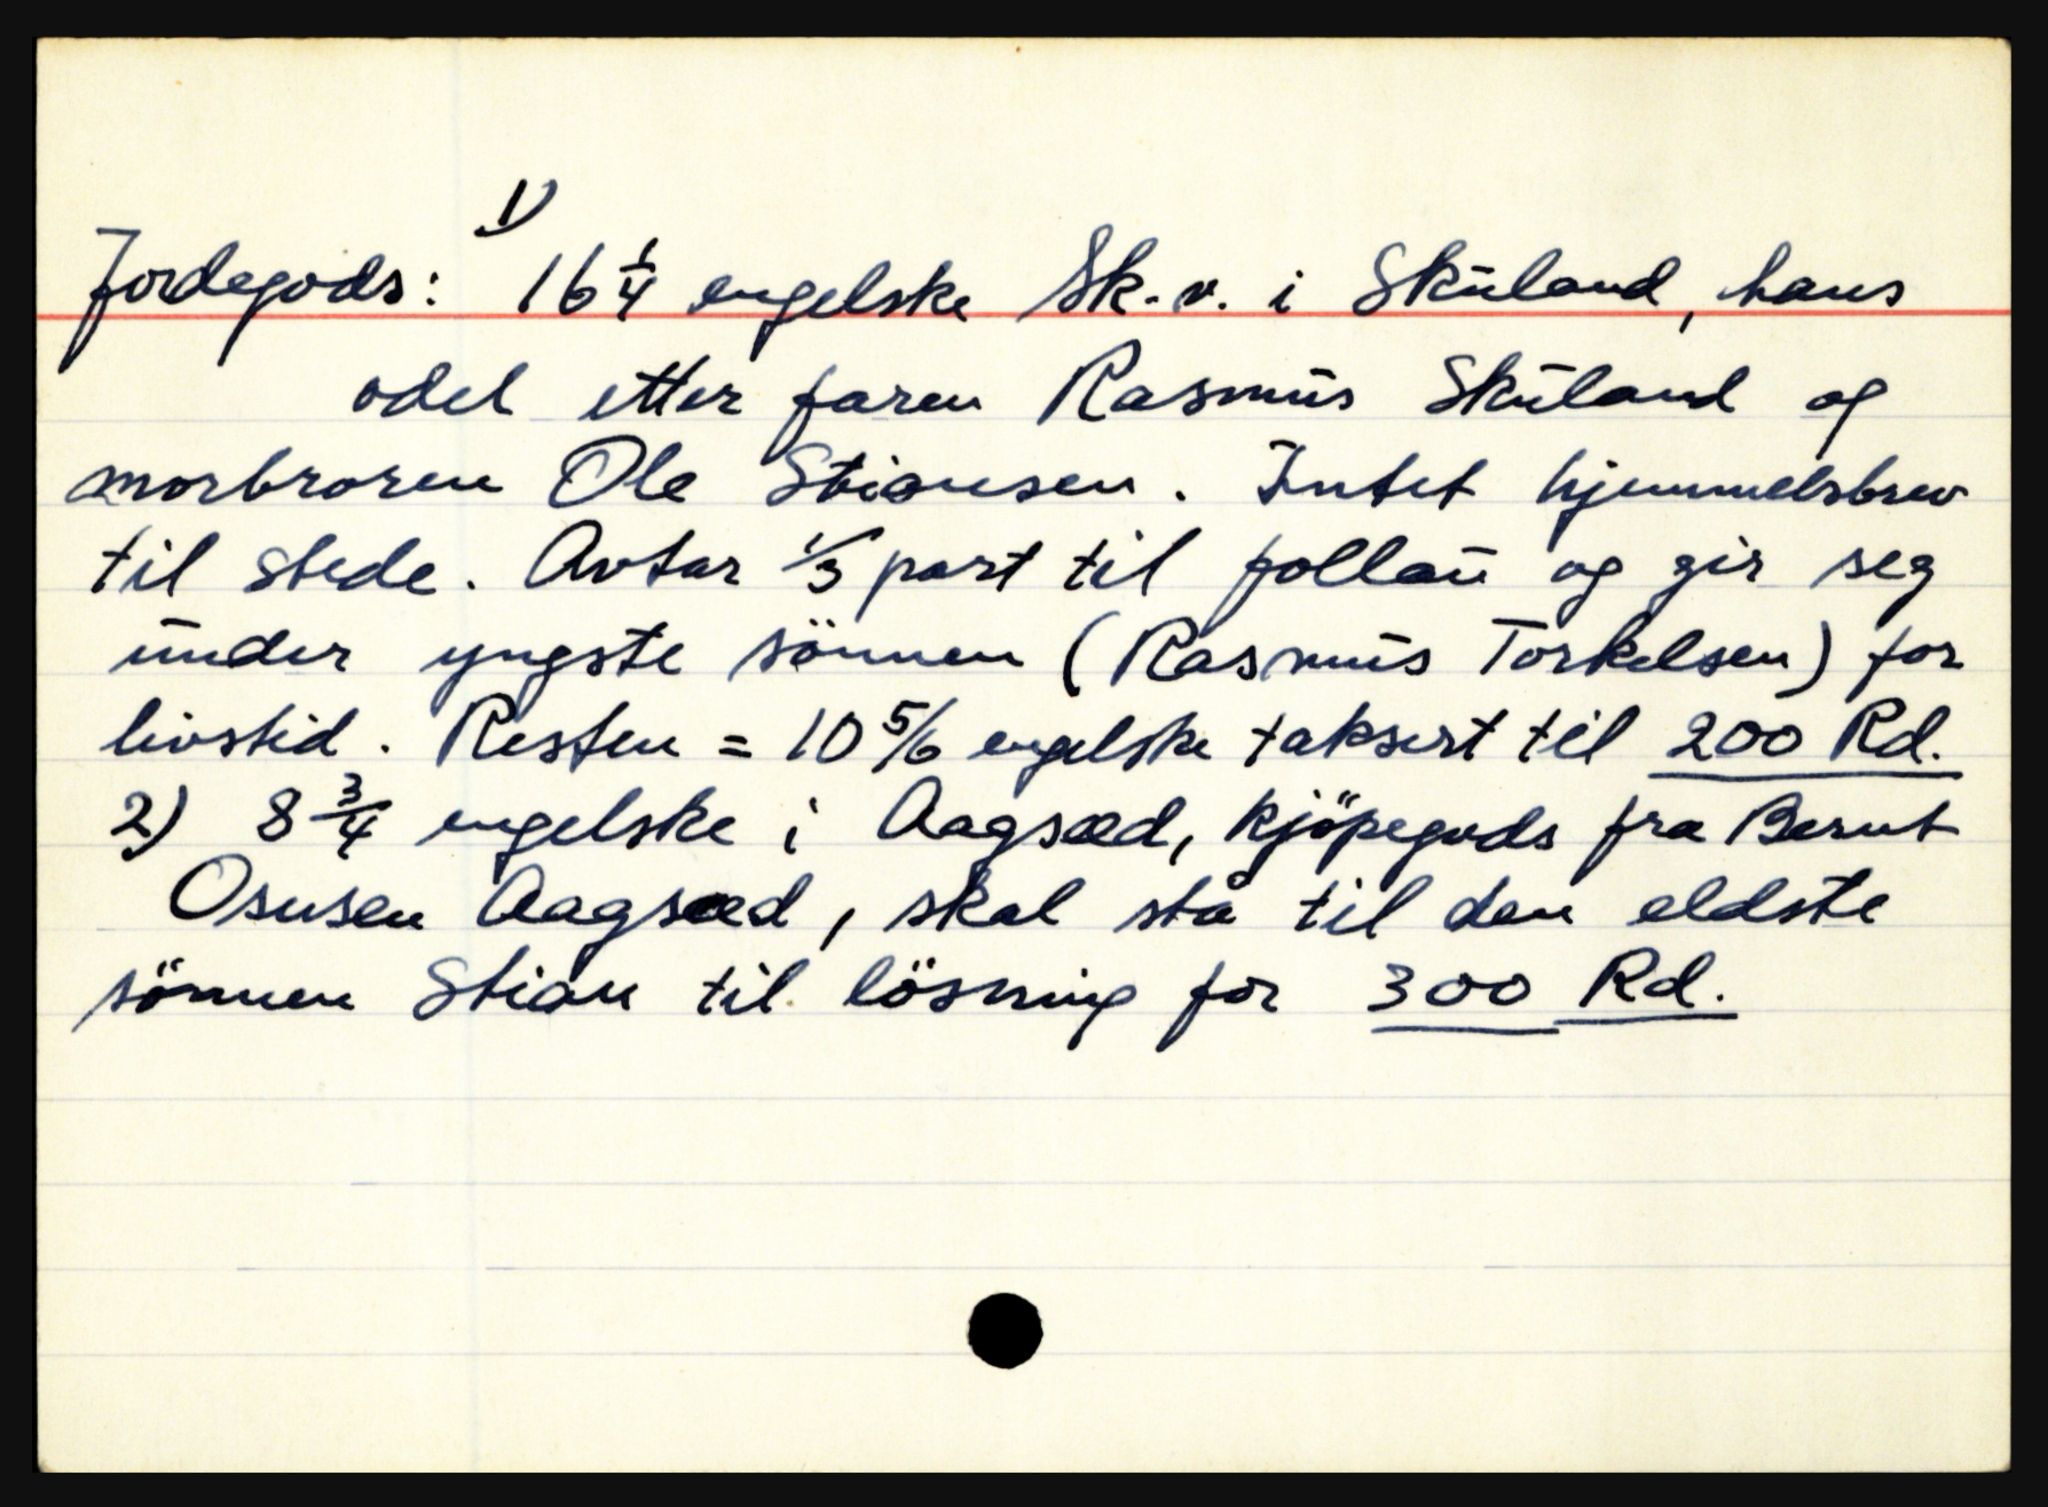 1)
Jordegods: 16 1/4 engelske Sk. v. i Skuland, hans
odel etter faren Rasmus Skuland og
morbroren Ole Stiansen. Intet hjemmelsbrev
til stede. Avtar 1/3 part til follau og gir seg
under yngste sönnen (Rasmus Torkelsen) for
livstid. Resten = 10 5/6 engelske taksert til 200 Rd.
2) 8 3/4 engelske i Aagsæd, kjöpegods fra Bernt
Osusen Aagsæd, skal stå til den eldste
sönnen Stian til lösning for 300 Rd.